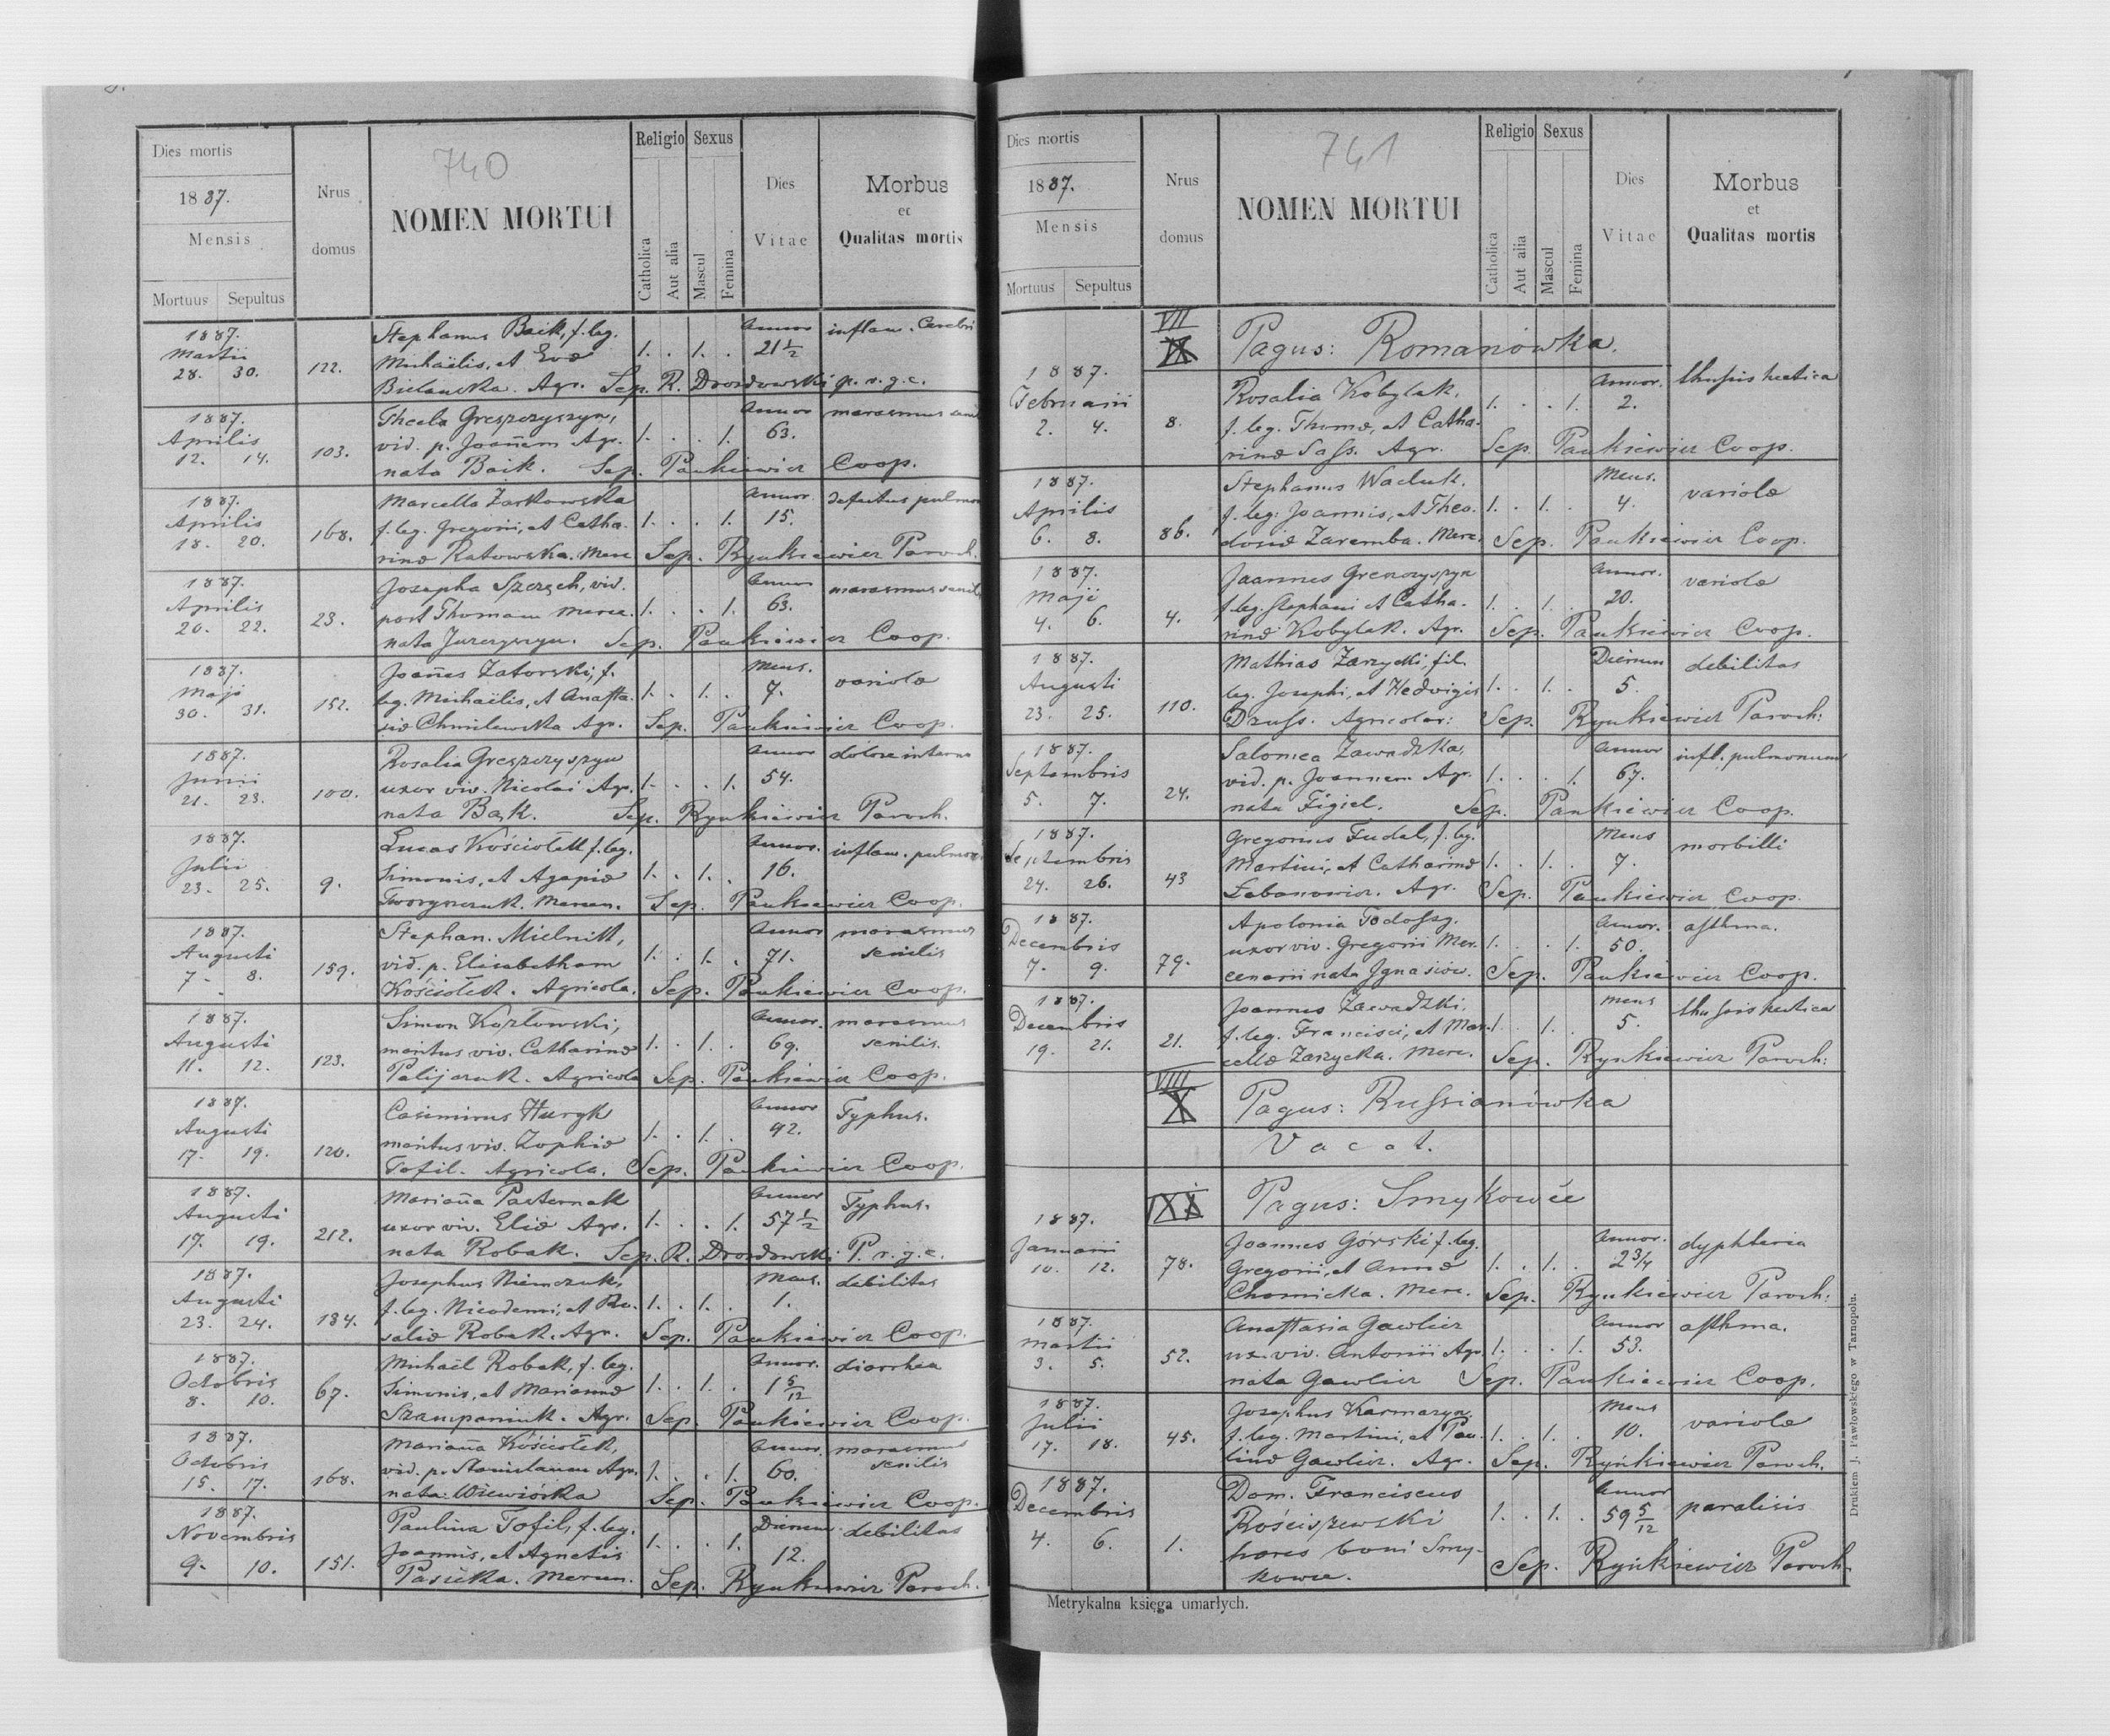 740
Dies mortis
1887.
Mensis
Mortuus Sepultus
Nrus
domus
NOMEN MORTUI
Religio
Catholica
Aut alia
Sexus
Mascul
Femina
Dies
Vitae
Morbus
et
Qualitas mortis
1887.
Martii
28. 30.
122.
Stephanus Baik, f. leg.
Michaëlis, et Evæ
Bielawska. Agr. Sep. R. Drozdowski p. r. g. c.
1. . 1. .
Annor
21 1/2
inflam. Cerebri
1887.
Aprilis
12. 14.
103.
Thecla Greszczyszyn,
vid. p. Joañem Agr.
nata Baik. Sep. Pankiewicz Coop.
1. . . 1.
Annor
63.
marasmus
1887.
Aprilis
18. 20.
168.
Marcella Żarkowska
f. leg. Gregorii, et Catha-
rinæ Ratowska. Merc. Sep. Rynkiewicz Paroch.
1. . . 1.
Annor.
15.
defectus pulmon
1887.
Aprilis
20. 22.
23.
Josepha Szczęch, vid.
post Thomam Merce.
nata Jurczyszyn. Sep. Pankiewicz Coop.
1. . . 1.
Annor
63.
marasmus senilis
1887.
Maji
30. 31.
152.
Joañes Zatorski, f.
leg. Michaëlis, et Anasta-
siæ Chmilewska Agr. Sep. Pankiewicz Coop.
1. . 1. .
Mens.
7.
variola
1887.
Junii
21. 23.
100.
Rosalia Greszczyszyn
uxor viv. Nicolai Agr.
nata Bąk. Sep. Rynkiewicz Paroch.
1. . . 1.
Annor
54.
dolore interno
1887.
Julii
23. 25.
9.
Lucas Kościołek f. leg.
Simonis, et Agapiæ
Tworzynczuk. Mercen. Sep. Pankiewicz Coop.
1. . 1. .
Annor.
16.
inflam. pulmon
1887.
Augusti
7. 8.
159.
Stephan. Mielnik,
vid. p. Elisabetham
Kościołek. Agricola. Sep. Pankiewicz Coop.
1. . 1. .
Annor
71.
marasmus
senilis
1887.
Augusti
11. 12.
123.
Simon Kozłowski,
maritus viv. Catharinæ
Palijczuk. Agricola Sep. Pankiewicz Coop.
1. . 1. .
Annor.
69.
marasmus
senilis.
1887.
Augusti
17. 19.
120.
Casimirus Huryk
maritus viv. Zophiæ
Tofil. Agricola. Sep. Pankiewicz Coop.
1. . 1. .
Annor
92.
Typhus.
1887.
Augusti
17. 19.
212.
Mariaña Pasternak
uxor viv. Eliæ Agr.
nata Robak. Sep. R. Drozdowski P. r. g. c.
1. . . 1.
Annor
57 1/2
Typhus.
1887.
Augusti
23. 24.
184.
Josephus Niemczuk,
f. leg. Nicodemi, et Ro-
saliæ Robak. Agr. Sep. Pankiewicz Coop.
1. . 1. .
Mens.
1.
debilitas
1887.
Octobris
8. 10.
67.
Michaël Robak, f. leg.
Simonis, et Mariannæ
Szamponiuk. Agr. Sep. Pankiewicz Coop.
1. . 1. .
Annor.
1 5/12
diarrhea
1887.
Octobris
15. 17.
168.
Mariaña Kościołek,
vid. p. Stanislaum Agr.
nata Wiewiórka Sep. Pankiewicz Coop.
1. . . 1.
Annor.
60.
marasmus
senilis
1887.
Novembris
9. 10.
151.
Paulina Tofil, f. leg.
Joannis, et Agnetis
Pasieka. Mercen. Sep. Rynkiewicz Paroch.
1. . . 1.
Dierum
12.
debilitas
741
Dies mortis
1887.
Mensis
Mortuus Sepultus
Nrus
domus
NOMEN MORTUI
Religio
Catholica
Aut alia
Sexus
Mascul
Femina
Dies
Vitae
Morbus
et
Qualitas mortis
VII
Pagus: Romanówka.
1887.
Februarii
2. 4.
8.
Rosalia Kobylak,
f. leg. Thomæ, et Catha-
rinæ Sass. Agr. Sep. Pankiewicz Coop.
1. . . 1.
Annor.
2.
thysis hectica
1887.
Aprilis
6. 8.
86.
Stephanus Wacluk,
f. leg. Joannis, et Theo-
dosiæ Zaremba. Merc. Sep. Pankiewicz Coop.
1. . 1. .
Mens.
4.
variola
1887.
Maji
4. 6.
4.
Joannes Grenczyszyn
f. leg. Stephani et Catha-
rinæ Kobylak. Agr. Sep. Pankiewicz Coop.
1. . 1. .
Annor.
20.
variola
1887.
Augusti
23. 25.
110.
Mathias Zarzycki, fil.
leg. Josephi, et Hedvigis
Druss. Agricolar: Sep. Rynkiewicz Paroch:
1. . 1. .
Dierum
5.
debilitas
1887.
Septembris
5. 7.
24.
Salomea Zawadzka,
vid. p. Joannem Agr.
nata Figiel. Sep. Pankiewicz Coop.
1. . . 1.
Annor
67.
infl. pulmonum
1887.
Septembris
24. 26.
43
Gregorius Fudal, f. leg.
Martini, et Catharinæ
Łabanowicz. Agr. Sep. Pankiewicz Coop.
1. . 1. .
Mens
7.
morbilli
1887.
Decembris
7. 9.
79.
Apolonia Fedossy,
uxor viv. Gregorii Mer-
cenarii nata Ignasiow. Sep. Pankiewicz Coop.
1. . . 1.
Annor.
50.
asthma.
1887.
Decembris
19. 21.
21.
Joannes Zawadzki,
f. leg. Francisci, et Mar-
cellæ Zarzycka. Merc. Sep. Rynkiewicz Paroch:
1. . 1.
Mens
5.
thysis hectica
VIII
X
Pagus: Russianówka
Vacat.
IX
Pagus: Smykowce
1887.
Januarii
10. 12.
78.
Joannes Górski f. leg.
Gregorii, et Annæ
Chomicka. Merc. Sep. Rynkiewicz Paroch:
1. . 1. .
Annor.
2 3/4
dyphteria
1887.
Martii
3. 5.
52.
Anastasia Gawlicz
ux. viv. Antonii Agr.
nata Gawlicz Sep. Pankiewicz Coop.
1. . . 1.
Annor
53.
asthma.
1887.
Julii
17. 18.
45.
Josephus Karmazyn,
f. leg. Martini, et Pau-
linæ Gawlicz. Agr. Sep. Rynkiewicz Paroch.
1. . 1. .
Mens
10.
variola
1887.
Decembris
4. 6.
1.
Dom. Franciscus
Rościszewski
hæres boni Smy-
kowce. Sep. Rynkiewicz Paroch.
1. . 1. .
Annor
59 5/12
paralisis
Metrykalna księga umarłych.
Drukiem J. Pawłowskiego w Tarnopolu.